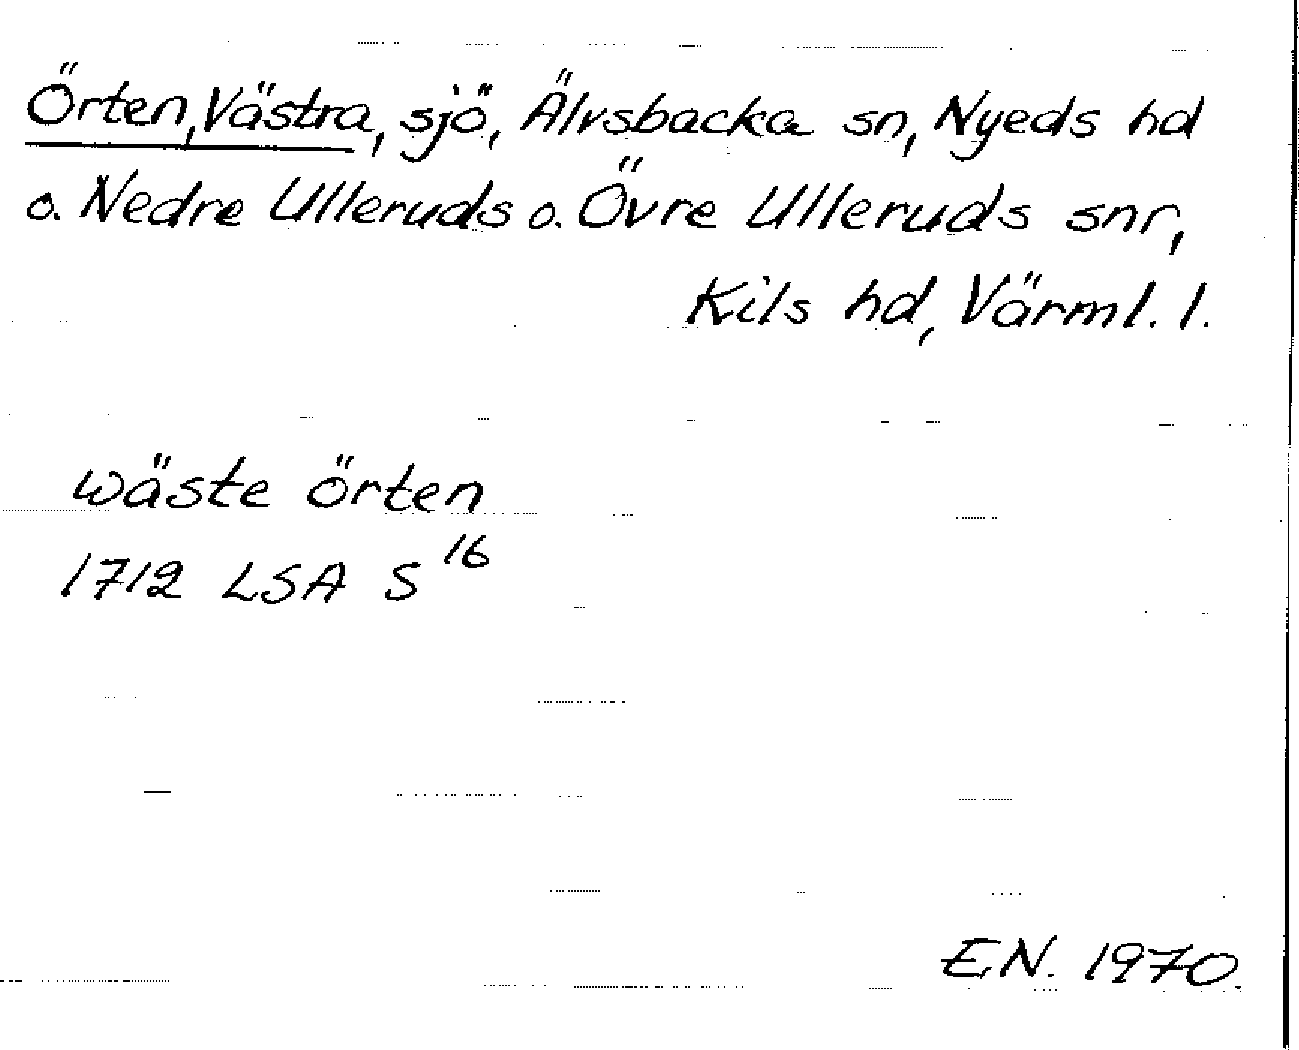 Örten, Västra, sjö, Älvsbacka sn, Nyeds hd
o. Nedre Ulleruds o. Övre Ulleruds snr,
Kils hd, Värml. l.
wäste örten
1712 LSA S 16
EN. 1970.